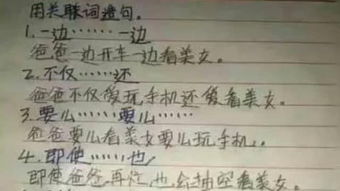 用关联词造句。
1.一边……一边
爸爸一边开车一边看美女。
2.不仅……还
爸爸不仅爱玩手机还爱看美女。
3.要么……要么……
爸爸要么看美女要么玩手机。
4.即使……也
即使爸爸再忙也会抽空看美女。